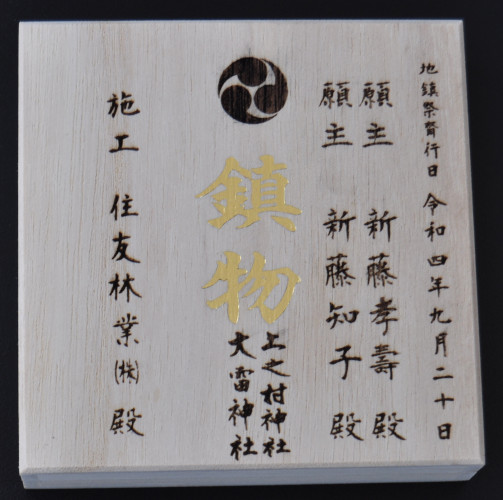 地鎮祭齊行日 令和四年九月二十日
願主 新藤孝壽 殿
願主 新藤知子 殿
鎮物
上之村神社
大雷神社
施工 住友林業㈱ 殿